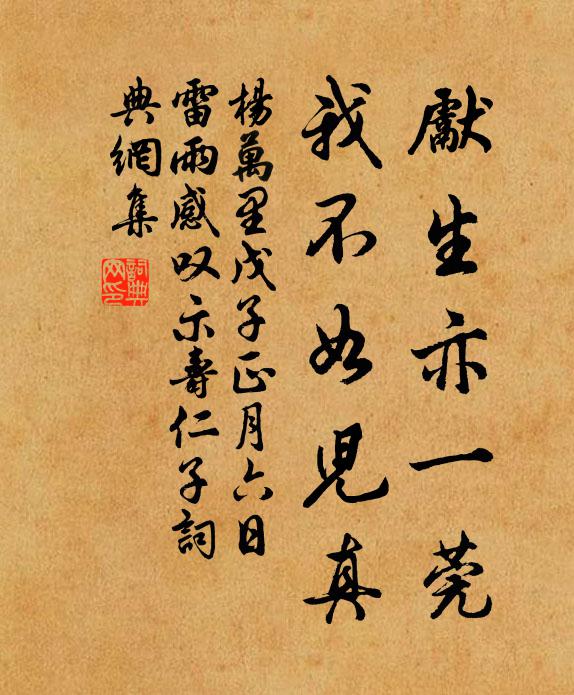 獻生亦一莞
我不如兒真
楊萬里戊子正月六日
雷雨感叹示壽仁子詞
典網集
詞典网印